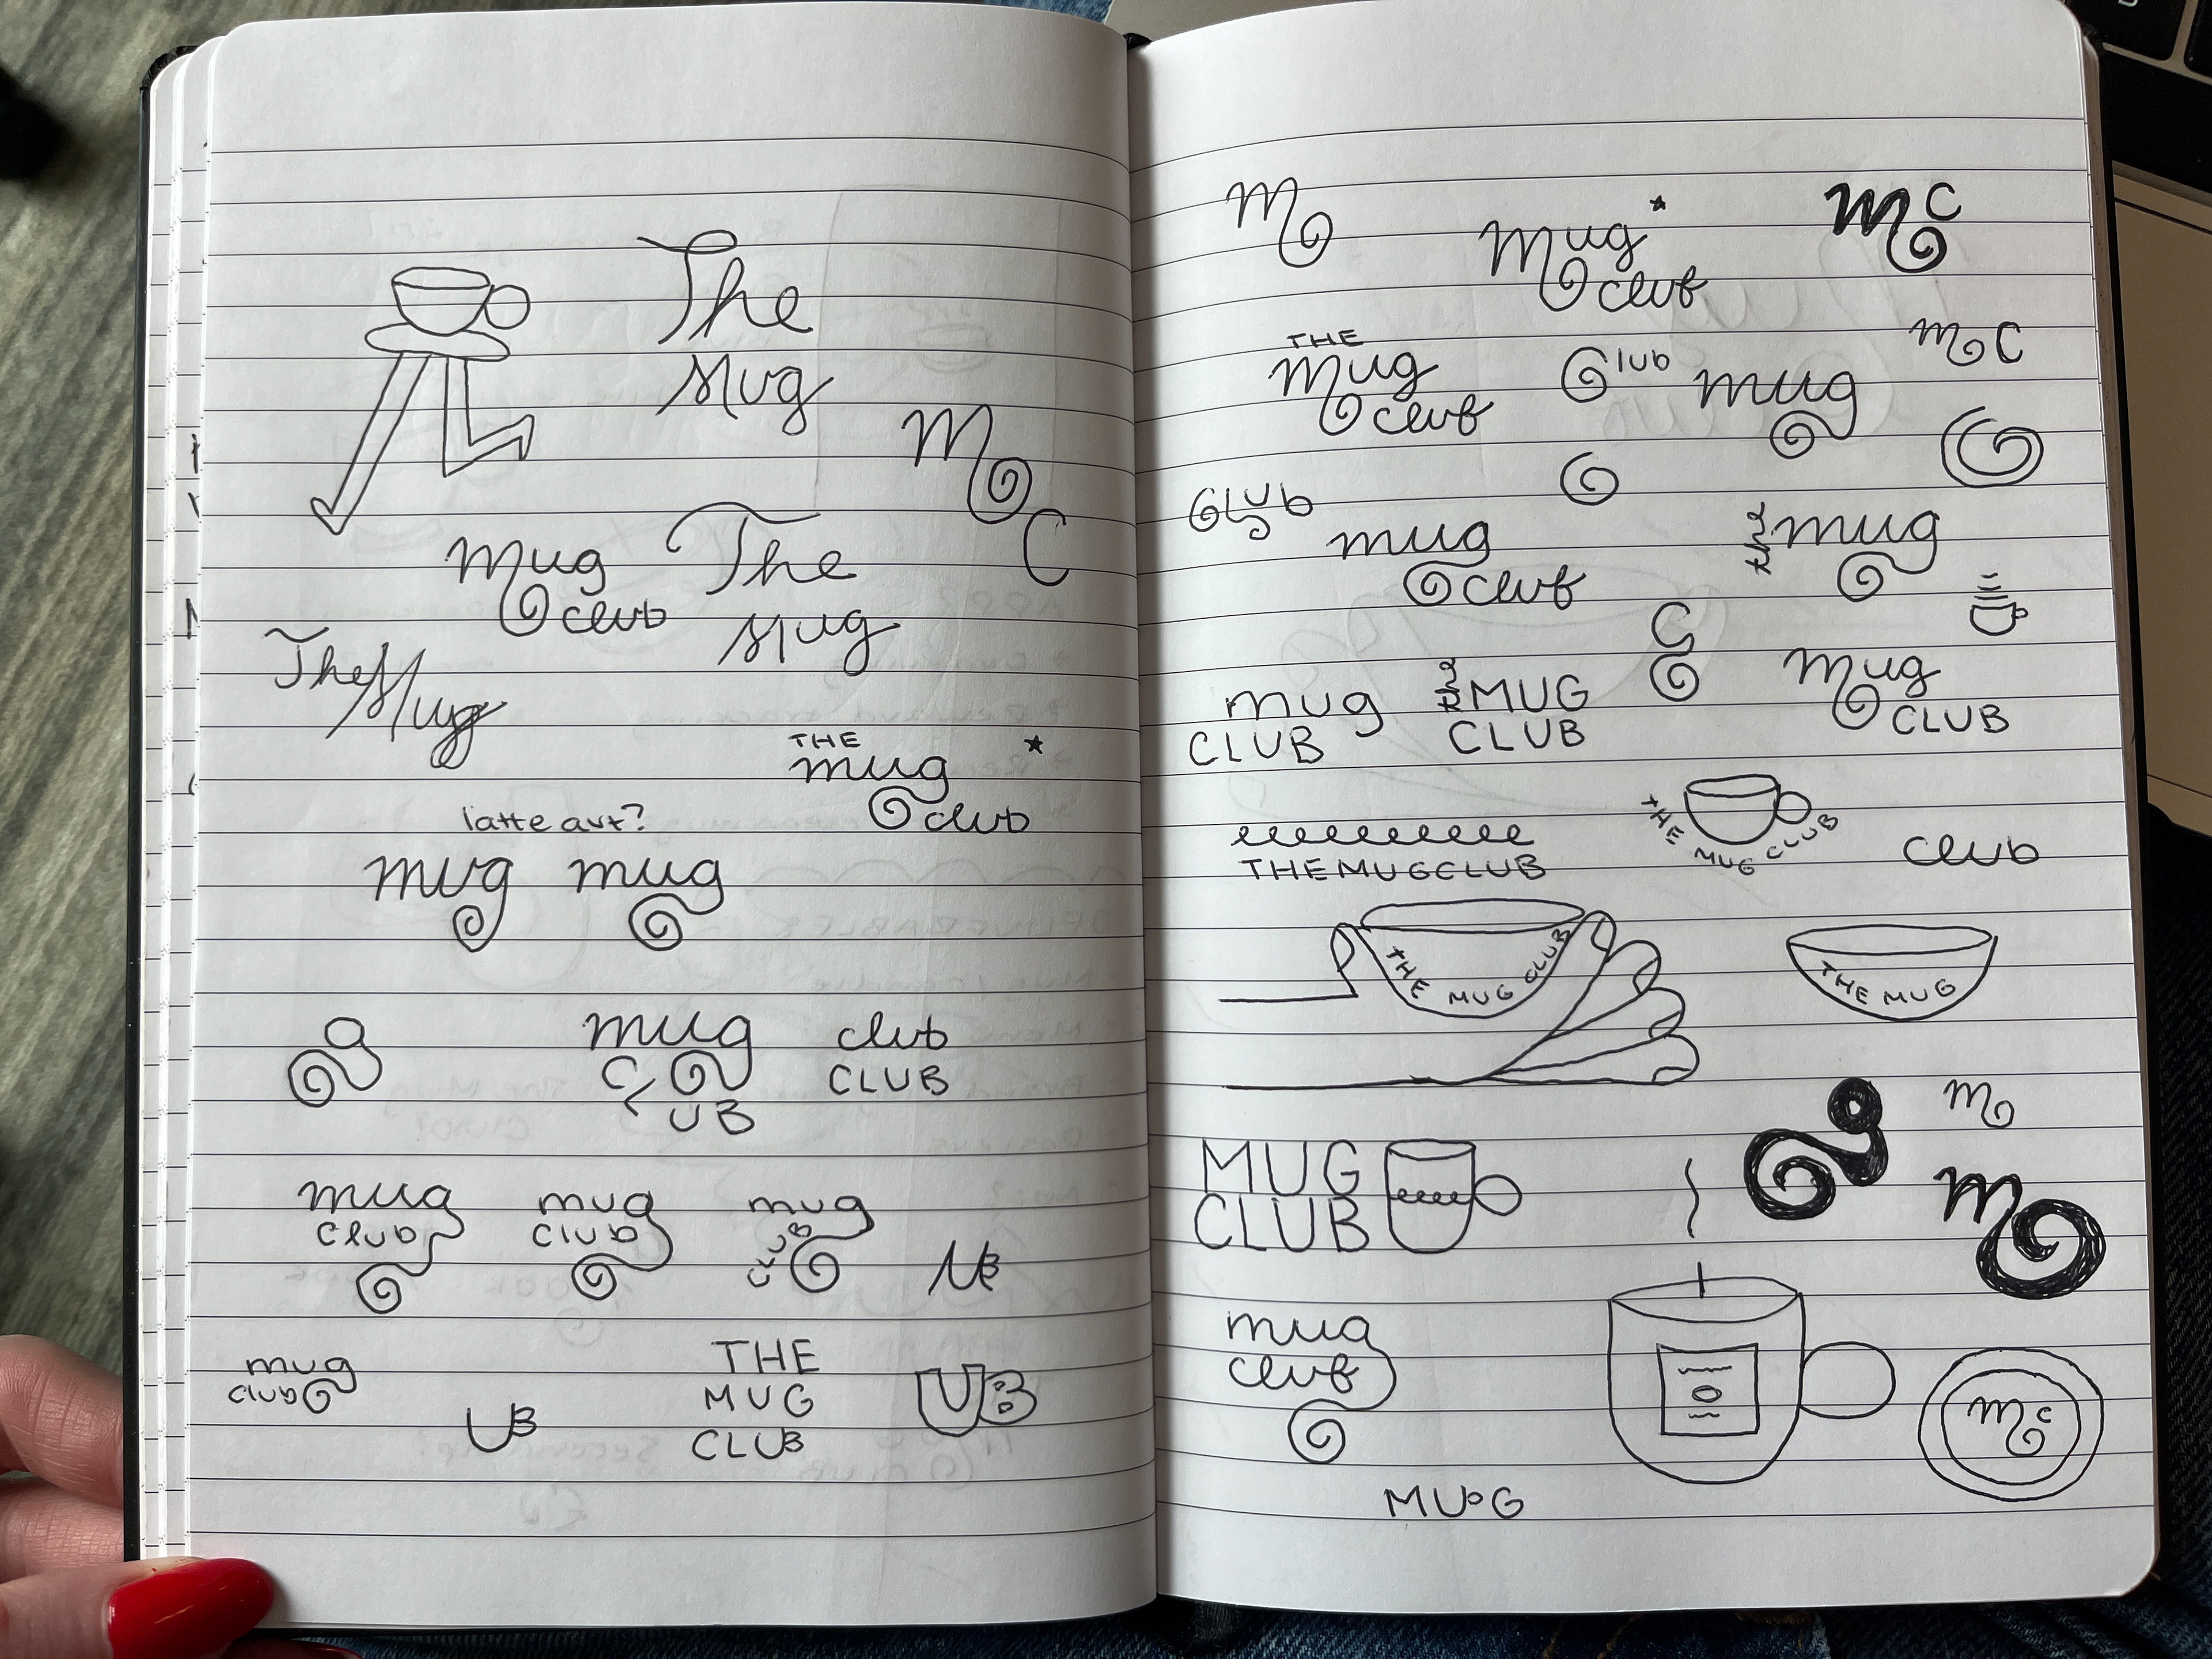 The
Mug
M
C
mug
club
The
Mug
The Mug
THE
mug
club
latte art?
mug mug
g
mug
CLUB
club
CLUB
mug
club
mug
club
mug
CLUB
UB
mug
club
UB
THE
MUG
CLUB
UB
m
mug
club
mc
THE
mug
club
Club
mug
mC
G
G
CLUB
mug
club
the mug
C
mug
CLUB
the MUG
CLUB
mug
CLUB
THE MUG CLUB
THE MUG CLUB
club
THE MUG CLUB
THE MUG
m
g
m
MUG
CLUB
mug
club
mc
MUG